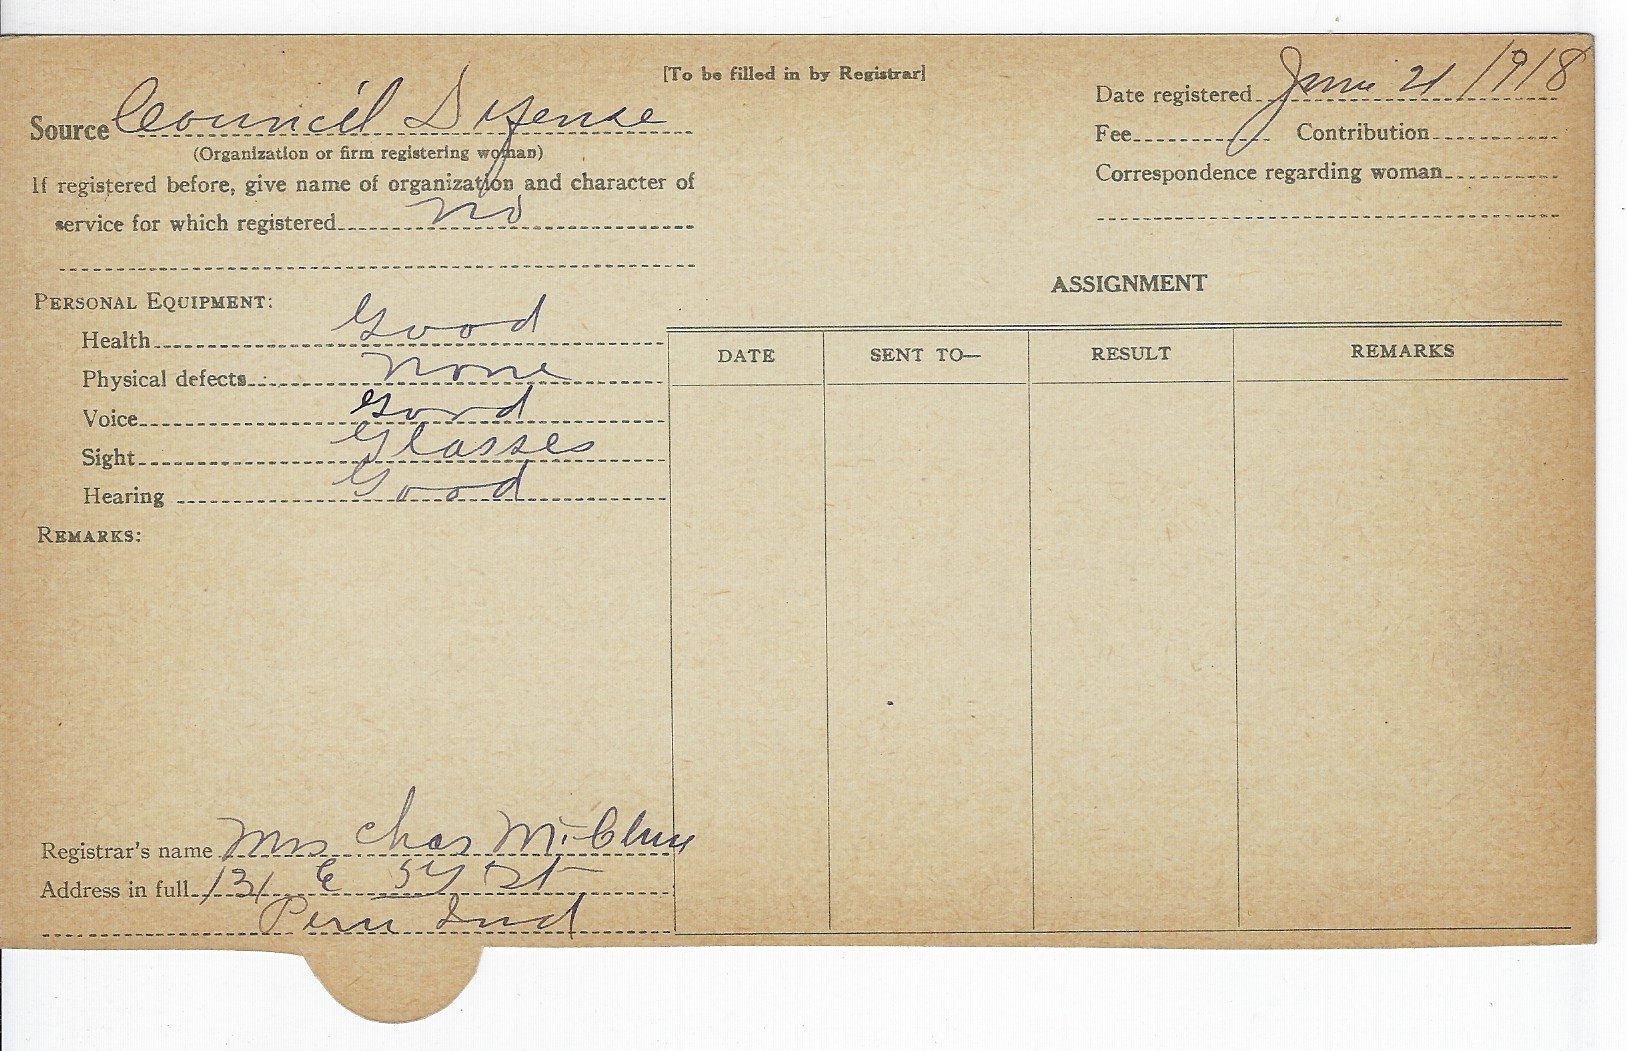 [To be filled in by Registrar]
Source Council Defense
(Organization or firm registering woman)
If registered before, give name of organization and character of
service for which registered No
Date registered June 21 1918
Fee Contribution
Correspondence regarding woman
PERSONAL EQUIPMENT:
Health Good
Physical defects None
Voice Good
Sight Glasses
Hearing Good
REMARKS:
ASSIGNMENT
DATE SENT TO— RESULT REMARKS
Registrar's name Mrs Chas
Address in full 131 E St
Peru Ind